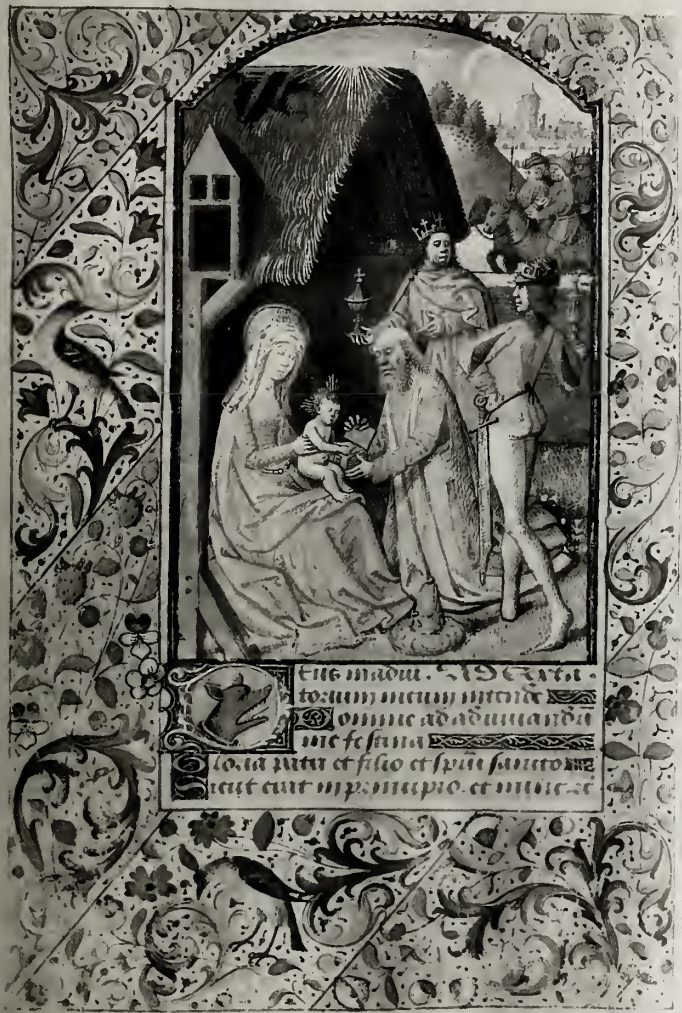 Deus in adiu
torium meum intende
Domine ad adiuuandū
me festina
Gloria patri et filio et spūi sancto
Sicut erat in principio et nunc et